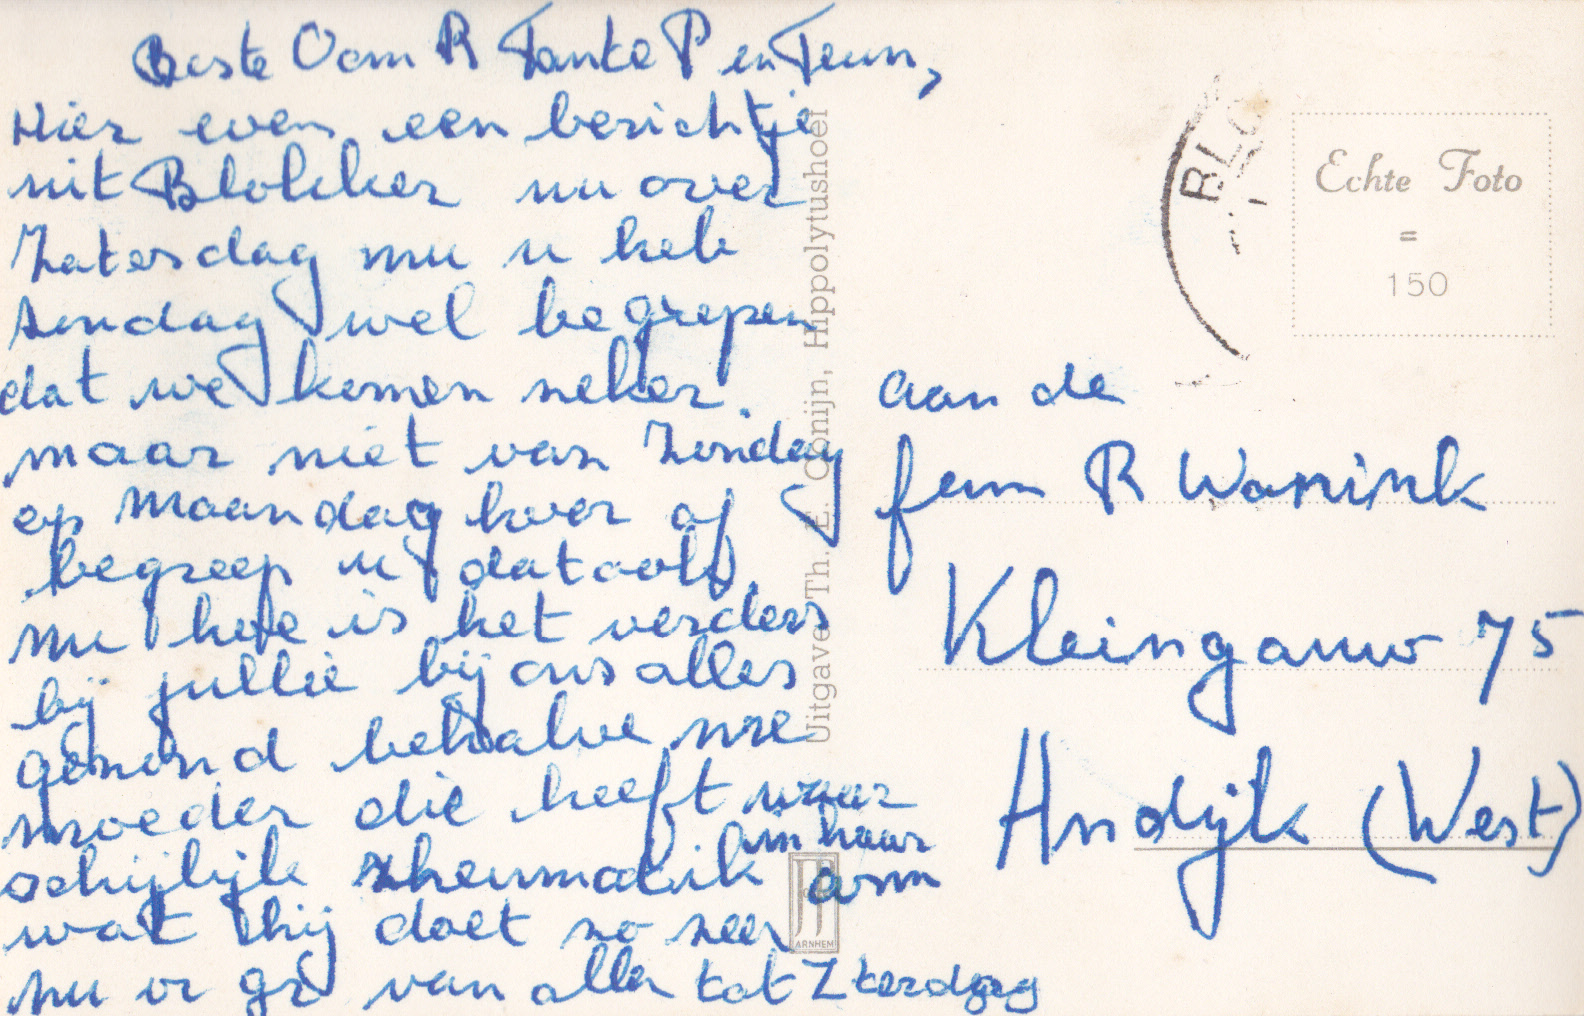 Beste Oom R Tante P en Teun,
Hier even een berichtje
uit Blokker nu over
Zaterdag nu u heb
Zondag wel begrepen
dat we komen zeker.
maar niet van Zondag
op Maandag hoor of
begreep u dat ook
nu hoe is het verders
bij jullie bij ons alles
gezond behalve
moeder die heeft waar
schijlijk rheumatiek in haar
arm
wat hij doet zo zeer
nu er gr van allen tot Zterdag
Uitgave Th. E. Conijn, Hippolytushoef
JP
ARNHEM
BLO
Echte Foto
=
150
aan de
fam R Wannink
Kleingouw 75
Andijk (West)